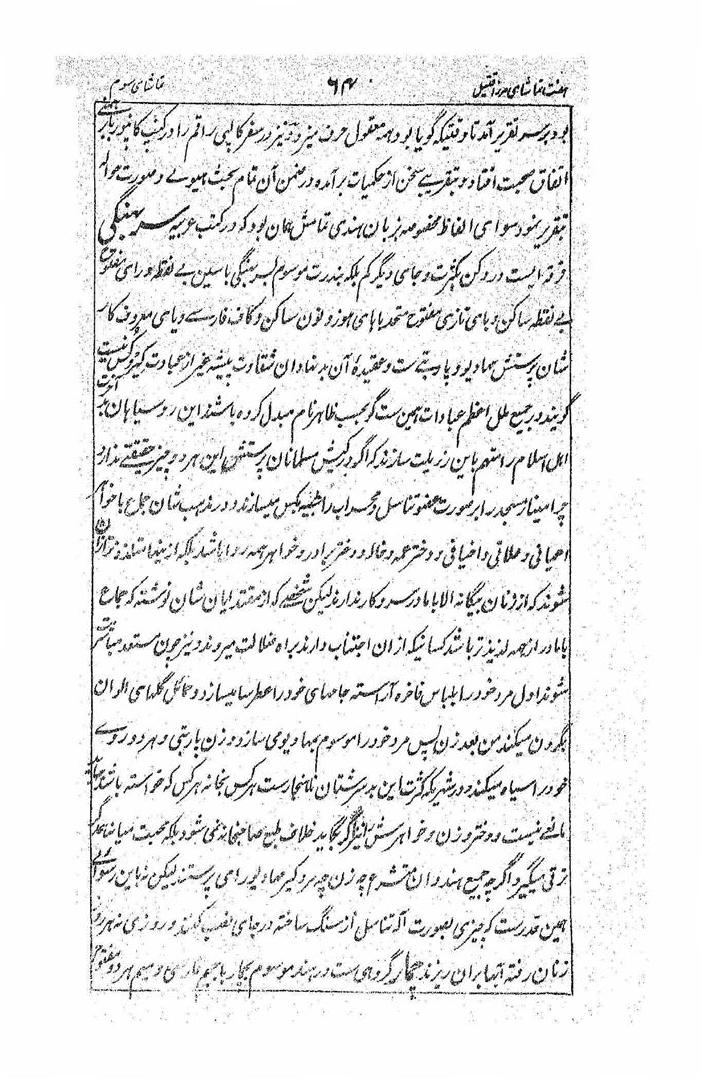 هفت تماشای مرزا قتیل ۶۴ تماشای سوم
بود بر سر تقریر آمد تا وقتیکه گویا بود همه معقول حرف میزد و نیز در سفر کالپی راقم را در کنپ کانپور با
اتفاق صحبت افتاد و بتقریبے سخن از حکمیات برآمد و در ضمن آن تمام بحث هیولے و صورت حواله
تقریر نمود سوای الفاظ مخصوصه بزبان هندی تمامش همان بود که در کتب عربیه سربهنگی
فرقه ایست در دکن بکثرت و جای دیگر کم بلکه بندرت موسوم بسربهنگی با سین بے نقطه و رای مفتوح
بے نقطه ساکن و بای تازی مفتوح متحد با های هوز و نون ساکن و کاف فارسے و یای معروف کار
شان پرستش مهادیو و پاربتے ست و عقیدهٔ آن بدنهادان شقاوت پیشه غیر از عبادت نیست
گویند در جمیع ملل اعظم عبادات همین ست گو بحسب ظاهر نام مبدل کرده باشند این روسیاهان بد
اهل اسلام را متهم باین رزیلت سازند که اگر در کیش مسلمانان پرستش این هر دو چیز حقیقتے ندارد
چرا مینار مسجد را بر صورت عضو تناسل و محراب را شبیه بکس میسازند و در مذهب شان جماع با خواهر
اعیانی و علاتی و اخیافی و دختر عمه و خاله و دختر برادر و خواهر همه روا باشد بلکه از ینها متلذذ تر ازان
شوند که از زنان بیگانه الا با مادر سر و کار ندارند لیکن شخصے که از مقتدایان شان نوشته که جماع
با مادر از همه لذیذ تر باشد کسانیکه از ان اجتناب دارند براه ضلالت میروند و نیز چون مستعد مباشرت
شوند اول مرد خود را بلباس فاخره آراسته جامهای خود را عطرسا میسازد و حمائل گلهای الوان
بگردن میکند من بعد زن پس مرد خود را موسوم بمهادیو می سازد و زن پاربتی و هر دو روے
خود را سیاه میکنند و در شهریکه کثرت این بدسرشتان ناهنجارست هر کس بخانه هر کس که خواسته باشد
مانعے نیست و دختر و زن و خواهرش را نیز اگر بگاید خلاف طبع صاحبخانه نمی شود بلکه محبت میانه
ترقی میگیرد اگرچه جمیع هندوان متشرع چه زن چه مرد لیکر مهادیو را می پرستند لیکن نه باین رسوائے
همین قدرست که چیزی بصورت آله تناسل از سنگ ساخته در جای نصب کنند و روزی نه هر روز
زنان رفته آبها بران ریزند چمار گروهی ست در هند موسوم بچمار با جیم فارسی و میم هر دو مفتوح